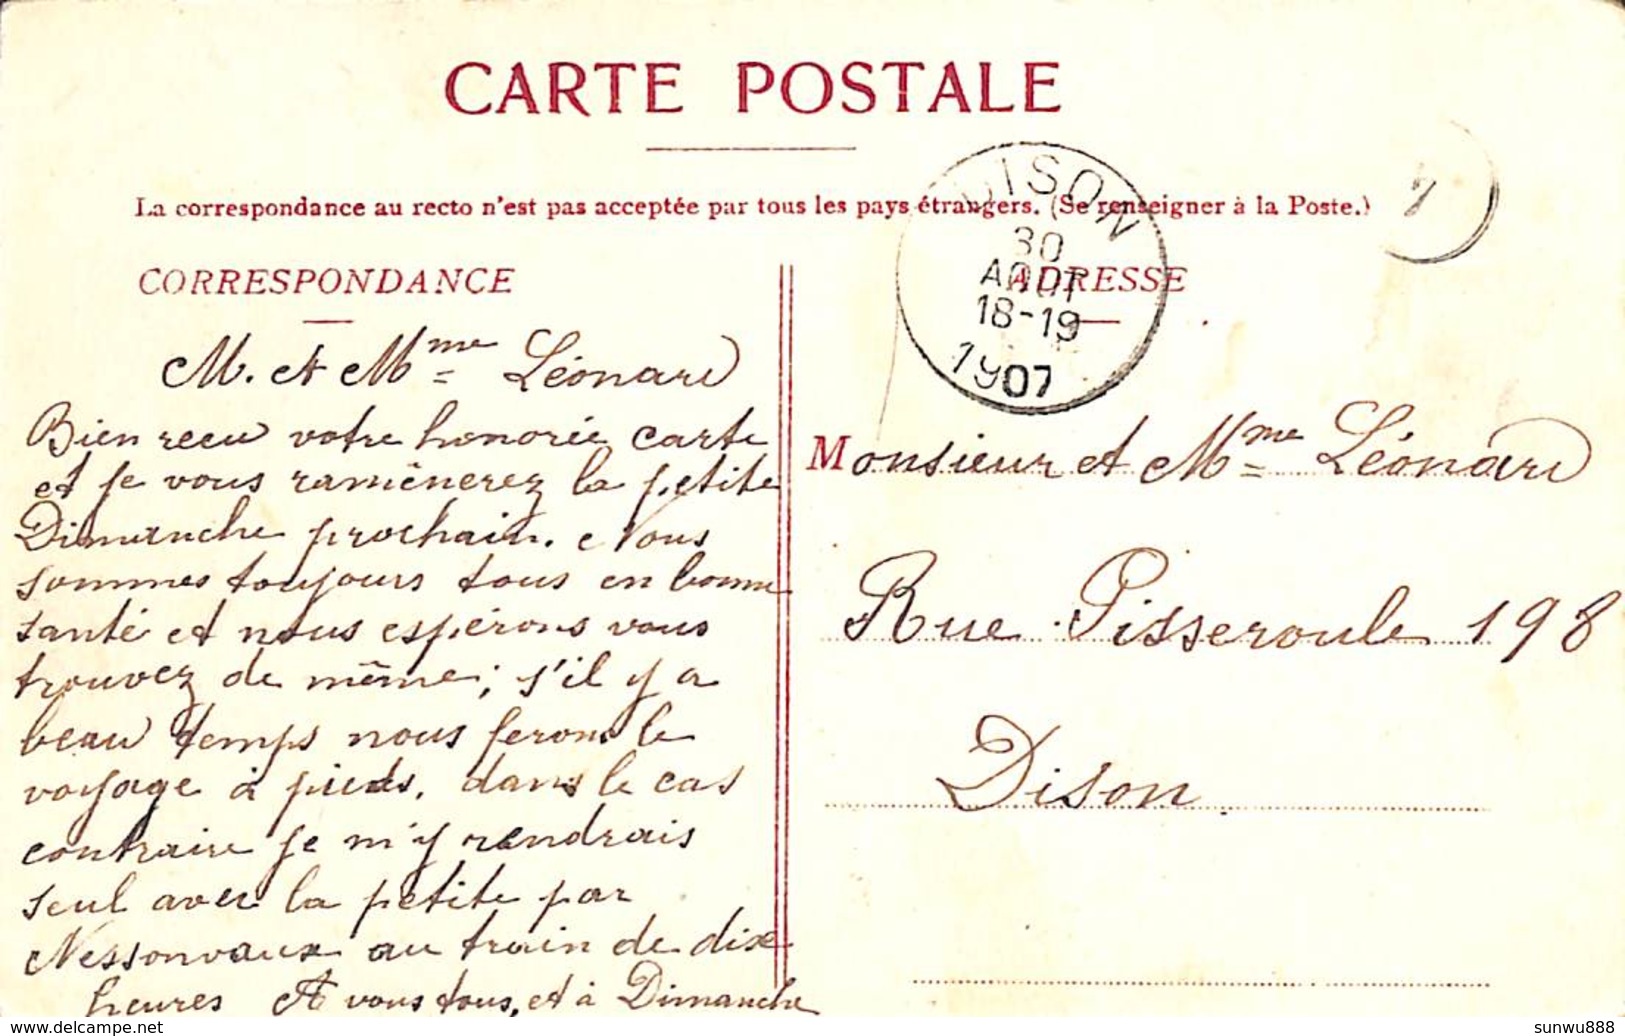 CARTE POSTALE
La correspondance au recto n'est pas acceptée par tous les pays étrangers. (Se renseigner à la Poste.)
DISON
30
AOUT
18-19
1907
CORRESPONDANCE
M. et Mme Léonard
Bien reçu votre honorée carte
et je vous ramènerez la petite
Dimanche prochain. Nous
sommes toujours tous en bonne
santé et nous espérons vous
trouvez de même; s'il y a
beau temps nous ferons le
voyage à pieds, dans le cas
contraire je m'y rendrais
seul avec la petite par
Nessonvaux au train de dix
heures et à vous tous, et à Dimanche
ADRESSE
Monsieur et Mme Léonard
Rue Pisseroule 198
Dison
delcampe.net
sunwu888